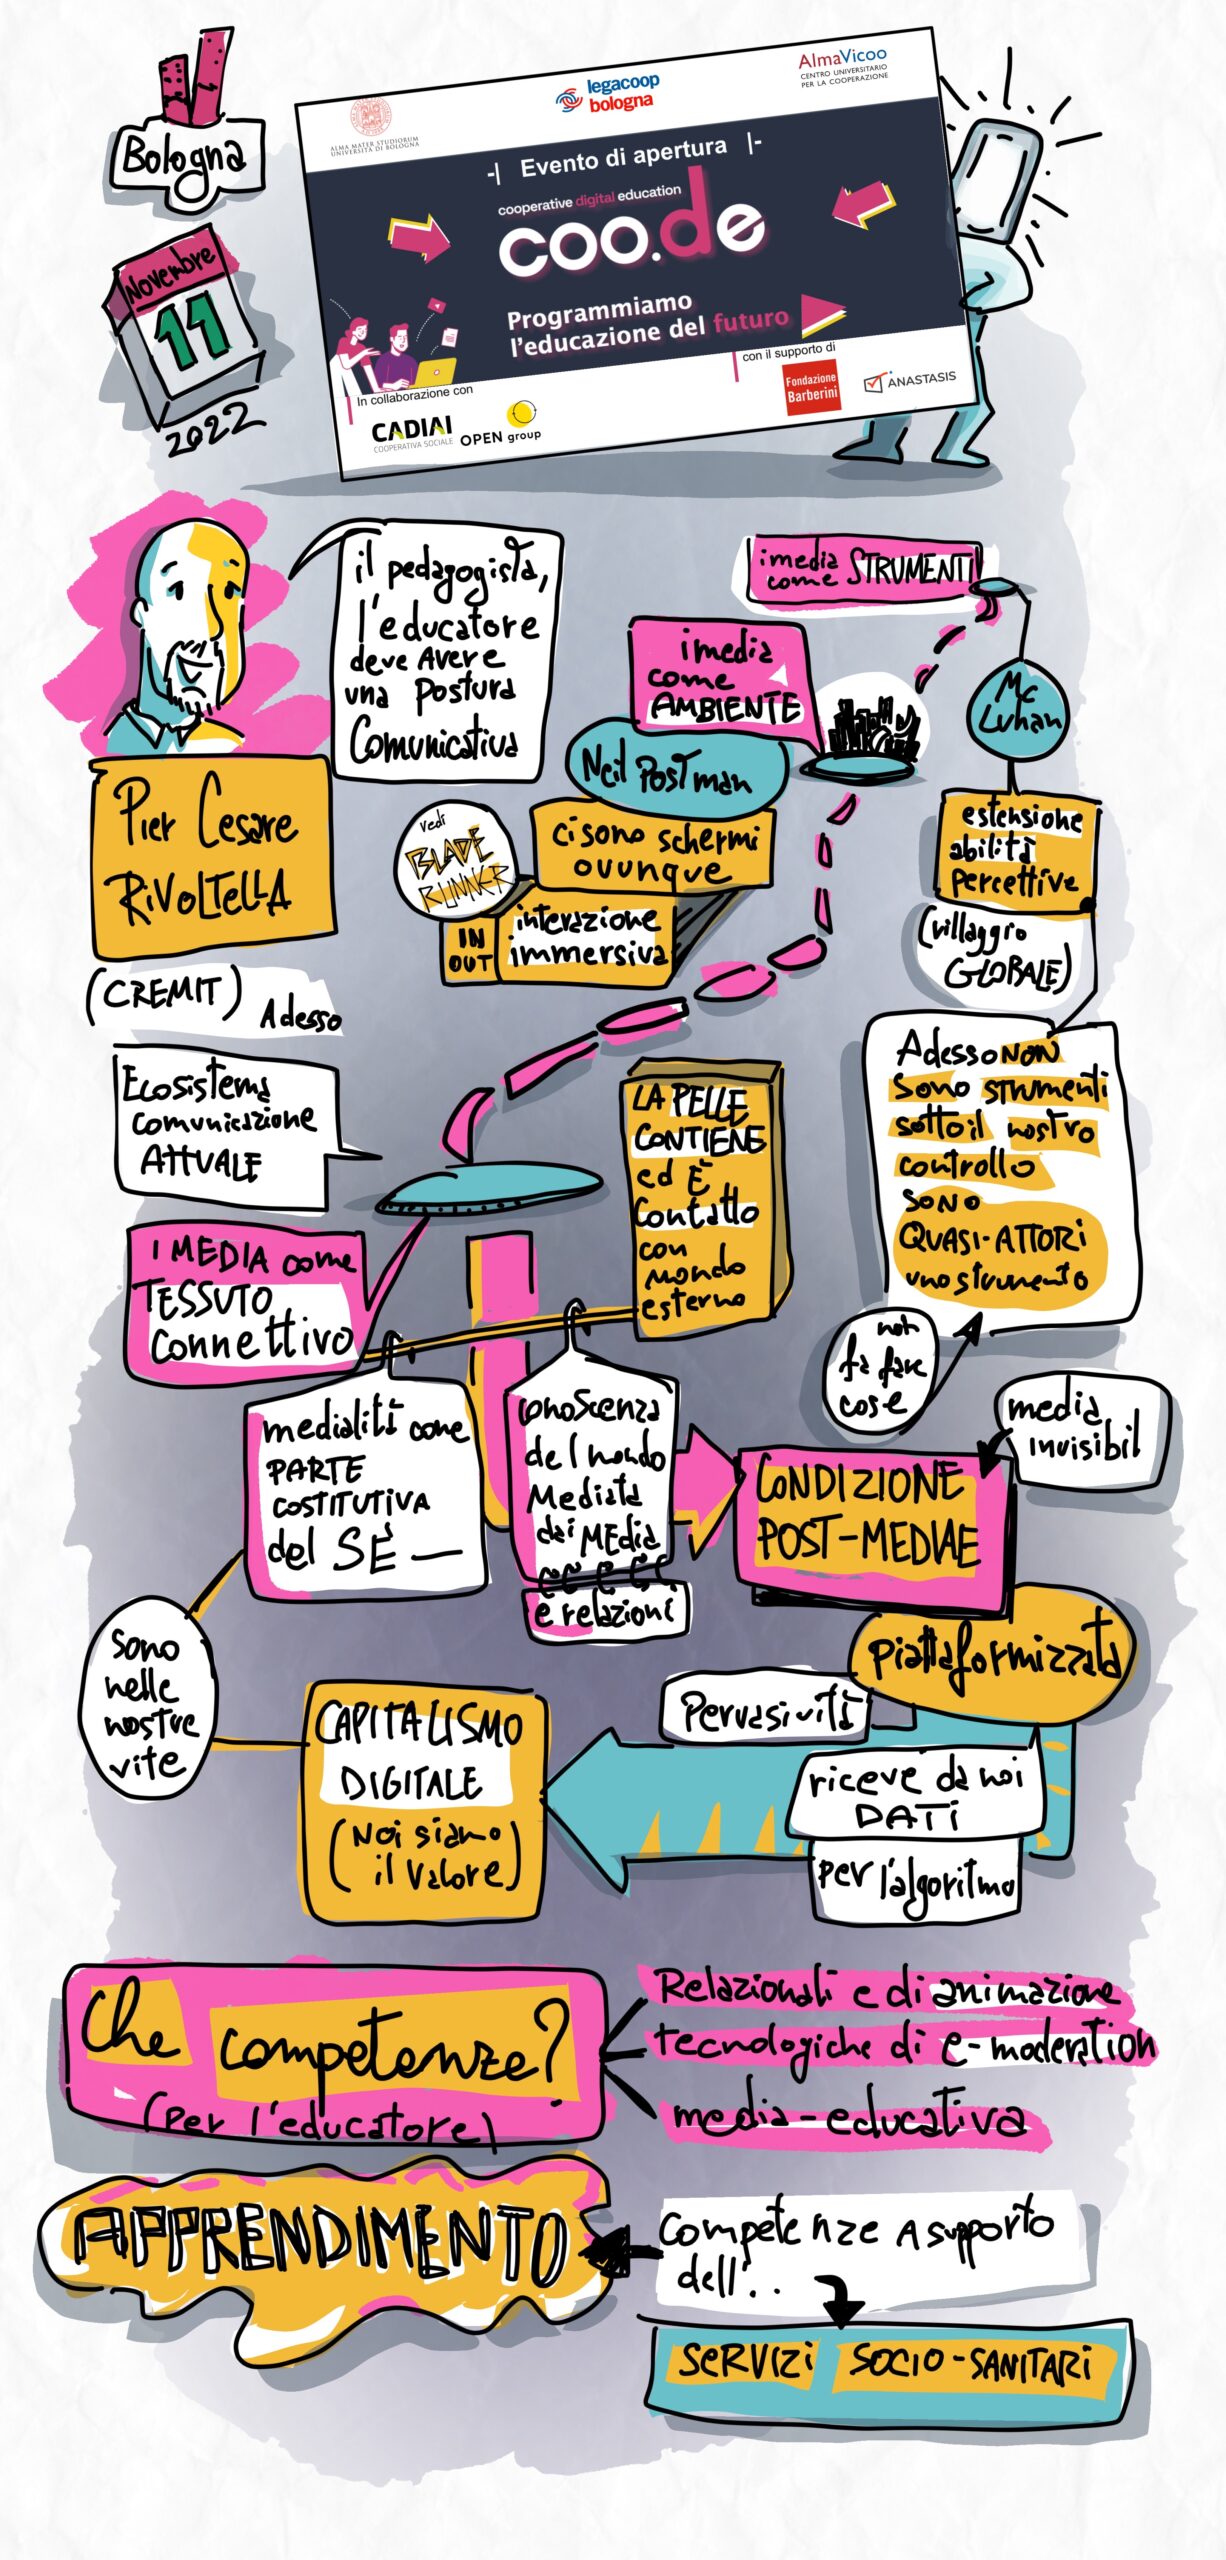 Bologna
Novembre
11
2022
ALMA MATER STUDIORUM
UNIVERSITÀ DI BOLOGNA
legacoop
bologna
AlmaVicoo
CENTRO UNIVERSITARIO
PER LA COOPERAZIONE
-| Evento di apertura |-
cooperative digital education
coo.de
Programmiamo
l'educazione del futuro
In collaborazione con
CADIAI
COOPERATIVA SOCIALE
OPEN group
con il supporto di
Fondazione
Barberini
ANASTASIS
il pedagogista,
l'educatore
deve avere
una postura
comunicativa
Pier Cesare
RIVOLTELLA
(CREMIT)
Adesso
i media
come STRUMENTI
Mc
Luhan
estensione
abilità
percettive
(villaggio
GLOBALE)
Adesso NON
sono strumenti
sotto il nostro
controllo
sono
QUASI-ATTORI
uno strumento
non
fa fare
cose
i media
come
AMBIENTE
Neil Postman
ci sono schermi
ovunque
vedi
BLADE
RUNNER
IN
OUT
interazione
immersiva
Ecosistema
comunicazione
ATTUALE
I MEDIA come
TESSUTO
connettivo
LA PELLE
CONTIENE
ed È
contatto
con
mondo
esterno
medialità come
PARTE
COSTITUTIVA
del SÉ
conoscenza
del mondo
mediata
dai MEdia
e relazioni
CONDIZIONE
POST-MEDIAE
media
invisibil
piattaformizzata
Pervasività
riceve da noi
DATI
per l'algoritmo
CAPITALISMO
DIGITALE
(Noi siamo
il valore)
sono
nelle
nostre
vite
Che competenze?
(per l'educatore)
Relazionali e di animazione
tecnologiche di e-moderation
media-educativa
APPRENDIMENTO
competenze a supporto
dell'..
SERVIZI SOCIO-SANITARI